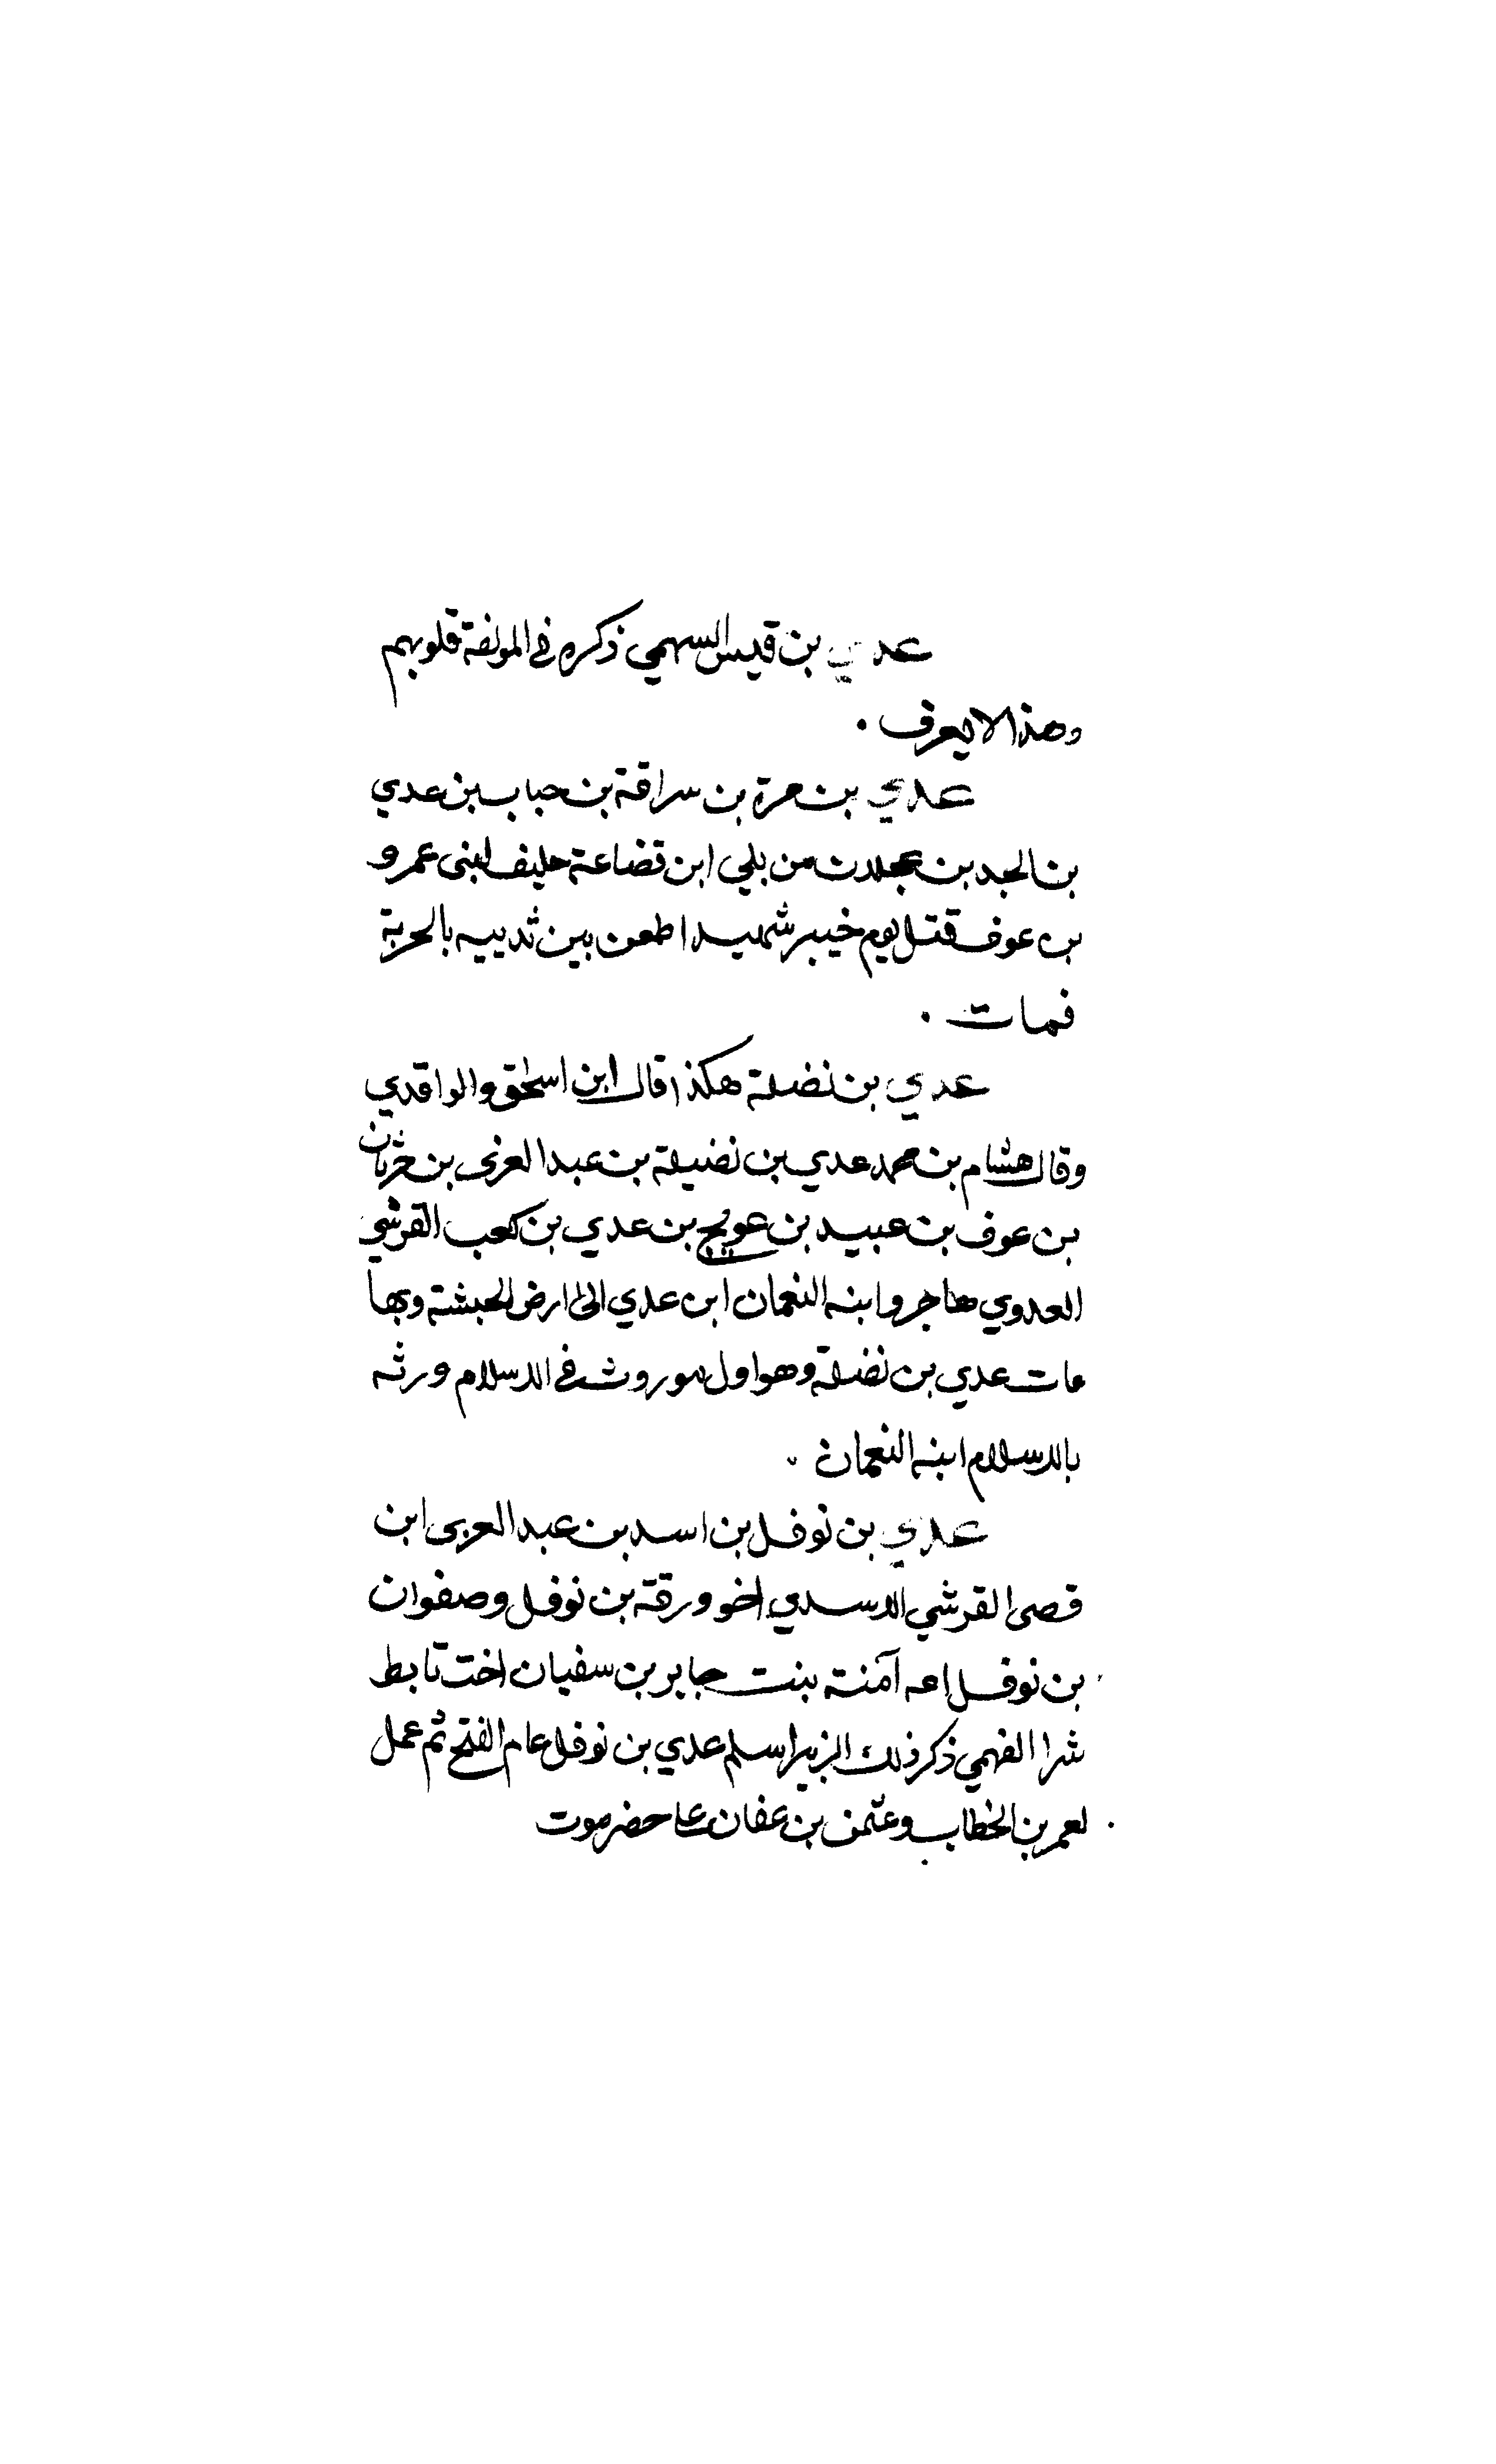 عدي بن قيس السهمي ذكره في المولفة قلوبهم
وهذا لا يعرف .
عدي بن مرة بن سراقة بن حباب بن عدي
بن الجد بن عجلان من بلي ابن قضاعة حليف لبنى عمرو
بن عوف قتل يوم خيبر شهيدا طعن بين ثدييه بالحربة
فمات .
عدي بن نضلة هكذا قال ابن اسحق والواقدي
وقال هشام بن محمد عدي بن نضيلة بن عبد العزى بن حرثان
بن عوف بن عبيد بن عويج بن عدي بن كعب القرشي
العدوي هاجر وابنه النعمان ابن عدي الى ارض الحبشة وبها
مات عدي بن نضلة وهو اول موروث في الاسلام ورثه
بالاسلام ابنه النعمان .
عدي بن نوفل بن اسد بن عبد العزى ابن
قصى القرشي الاسدي اخو ورقة بن نوفل وصفوان
بن نوفل امه آمنة بنت جابر بن سفيان اخت تابط
شرا الفهمي ذكر ذلك الزبير اسلم عدي بن نوفل عام الفتح ثم عمل
لعمر بن الخطاب وعثمن بن عفان على حضرموت